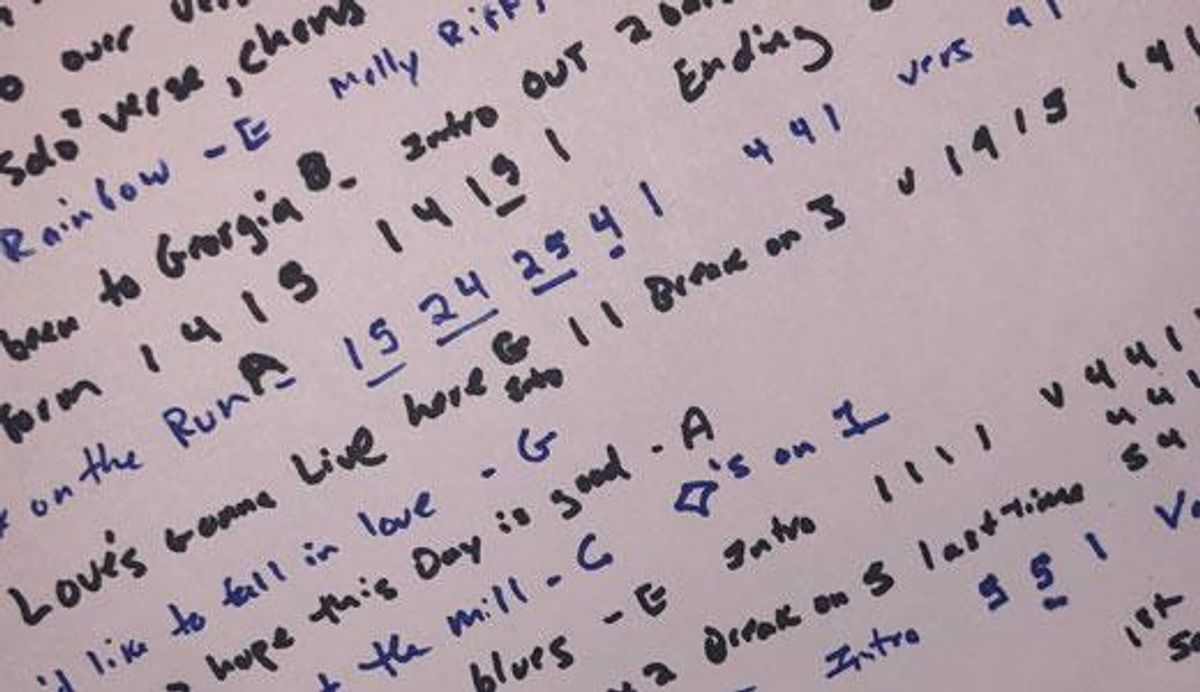 over
Solo verse, chorus
Rainbow - E Molly Riff
been to Georgia B- Intro OUT 2 Ending
form 1 4 1 5 1 4 1 5 1
on the Run A- 15 24 25 4 1 4 4 1 vers 4 1
Love's Gonna Live here G Solo 1 1 Break on 5 v 1 4 1 5 1 4 1
'd like to fall in love - G
hope this Day is good - A
the mill - C 's on 1
blues - E Intro 1 1 1 1 v 4 4 1
4 4
5 4
2 Break on 5 last time
Intro 5 5 1
1st